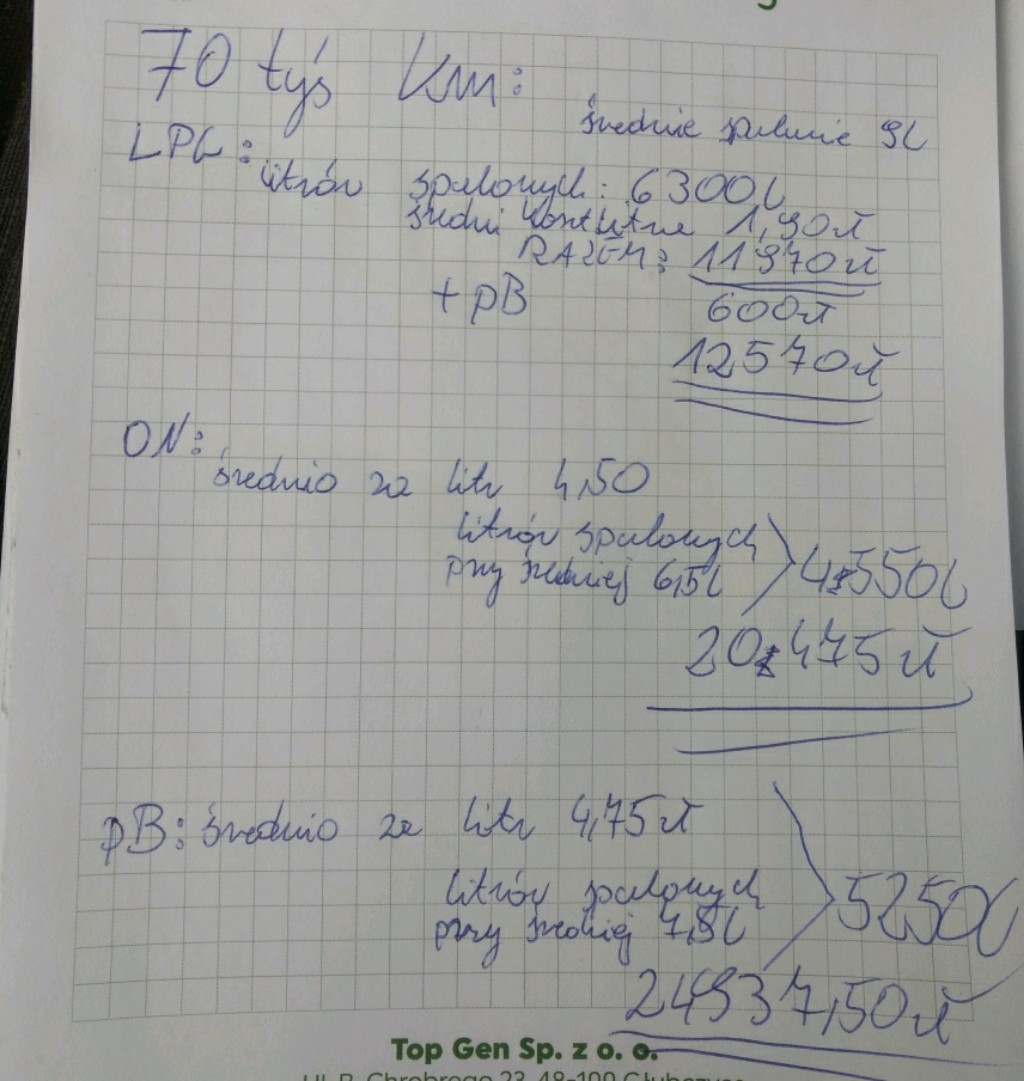 70 tyś km:
średnie spalanie 9L
LPG:
litrów spalonych: 6300L
średni koszt litra 1,90zł
RAZEM: 11970zł
+ pB 600zł
12570zł
ON:
średnio za litr 4,50
litrów spalonych
przy średniej 6,5L 4550L
20.475zł
pB: średnio za litr 4,75zł
litrów spalonych
przy średniej 7,5L 5250L
24937,50zł
Top Gen Sp. z o. o.